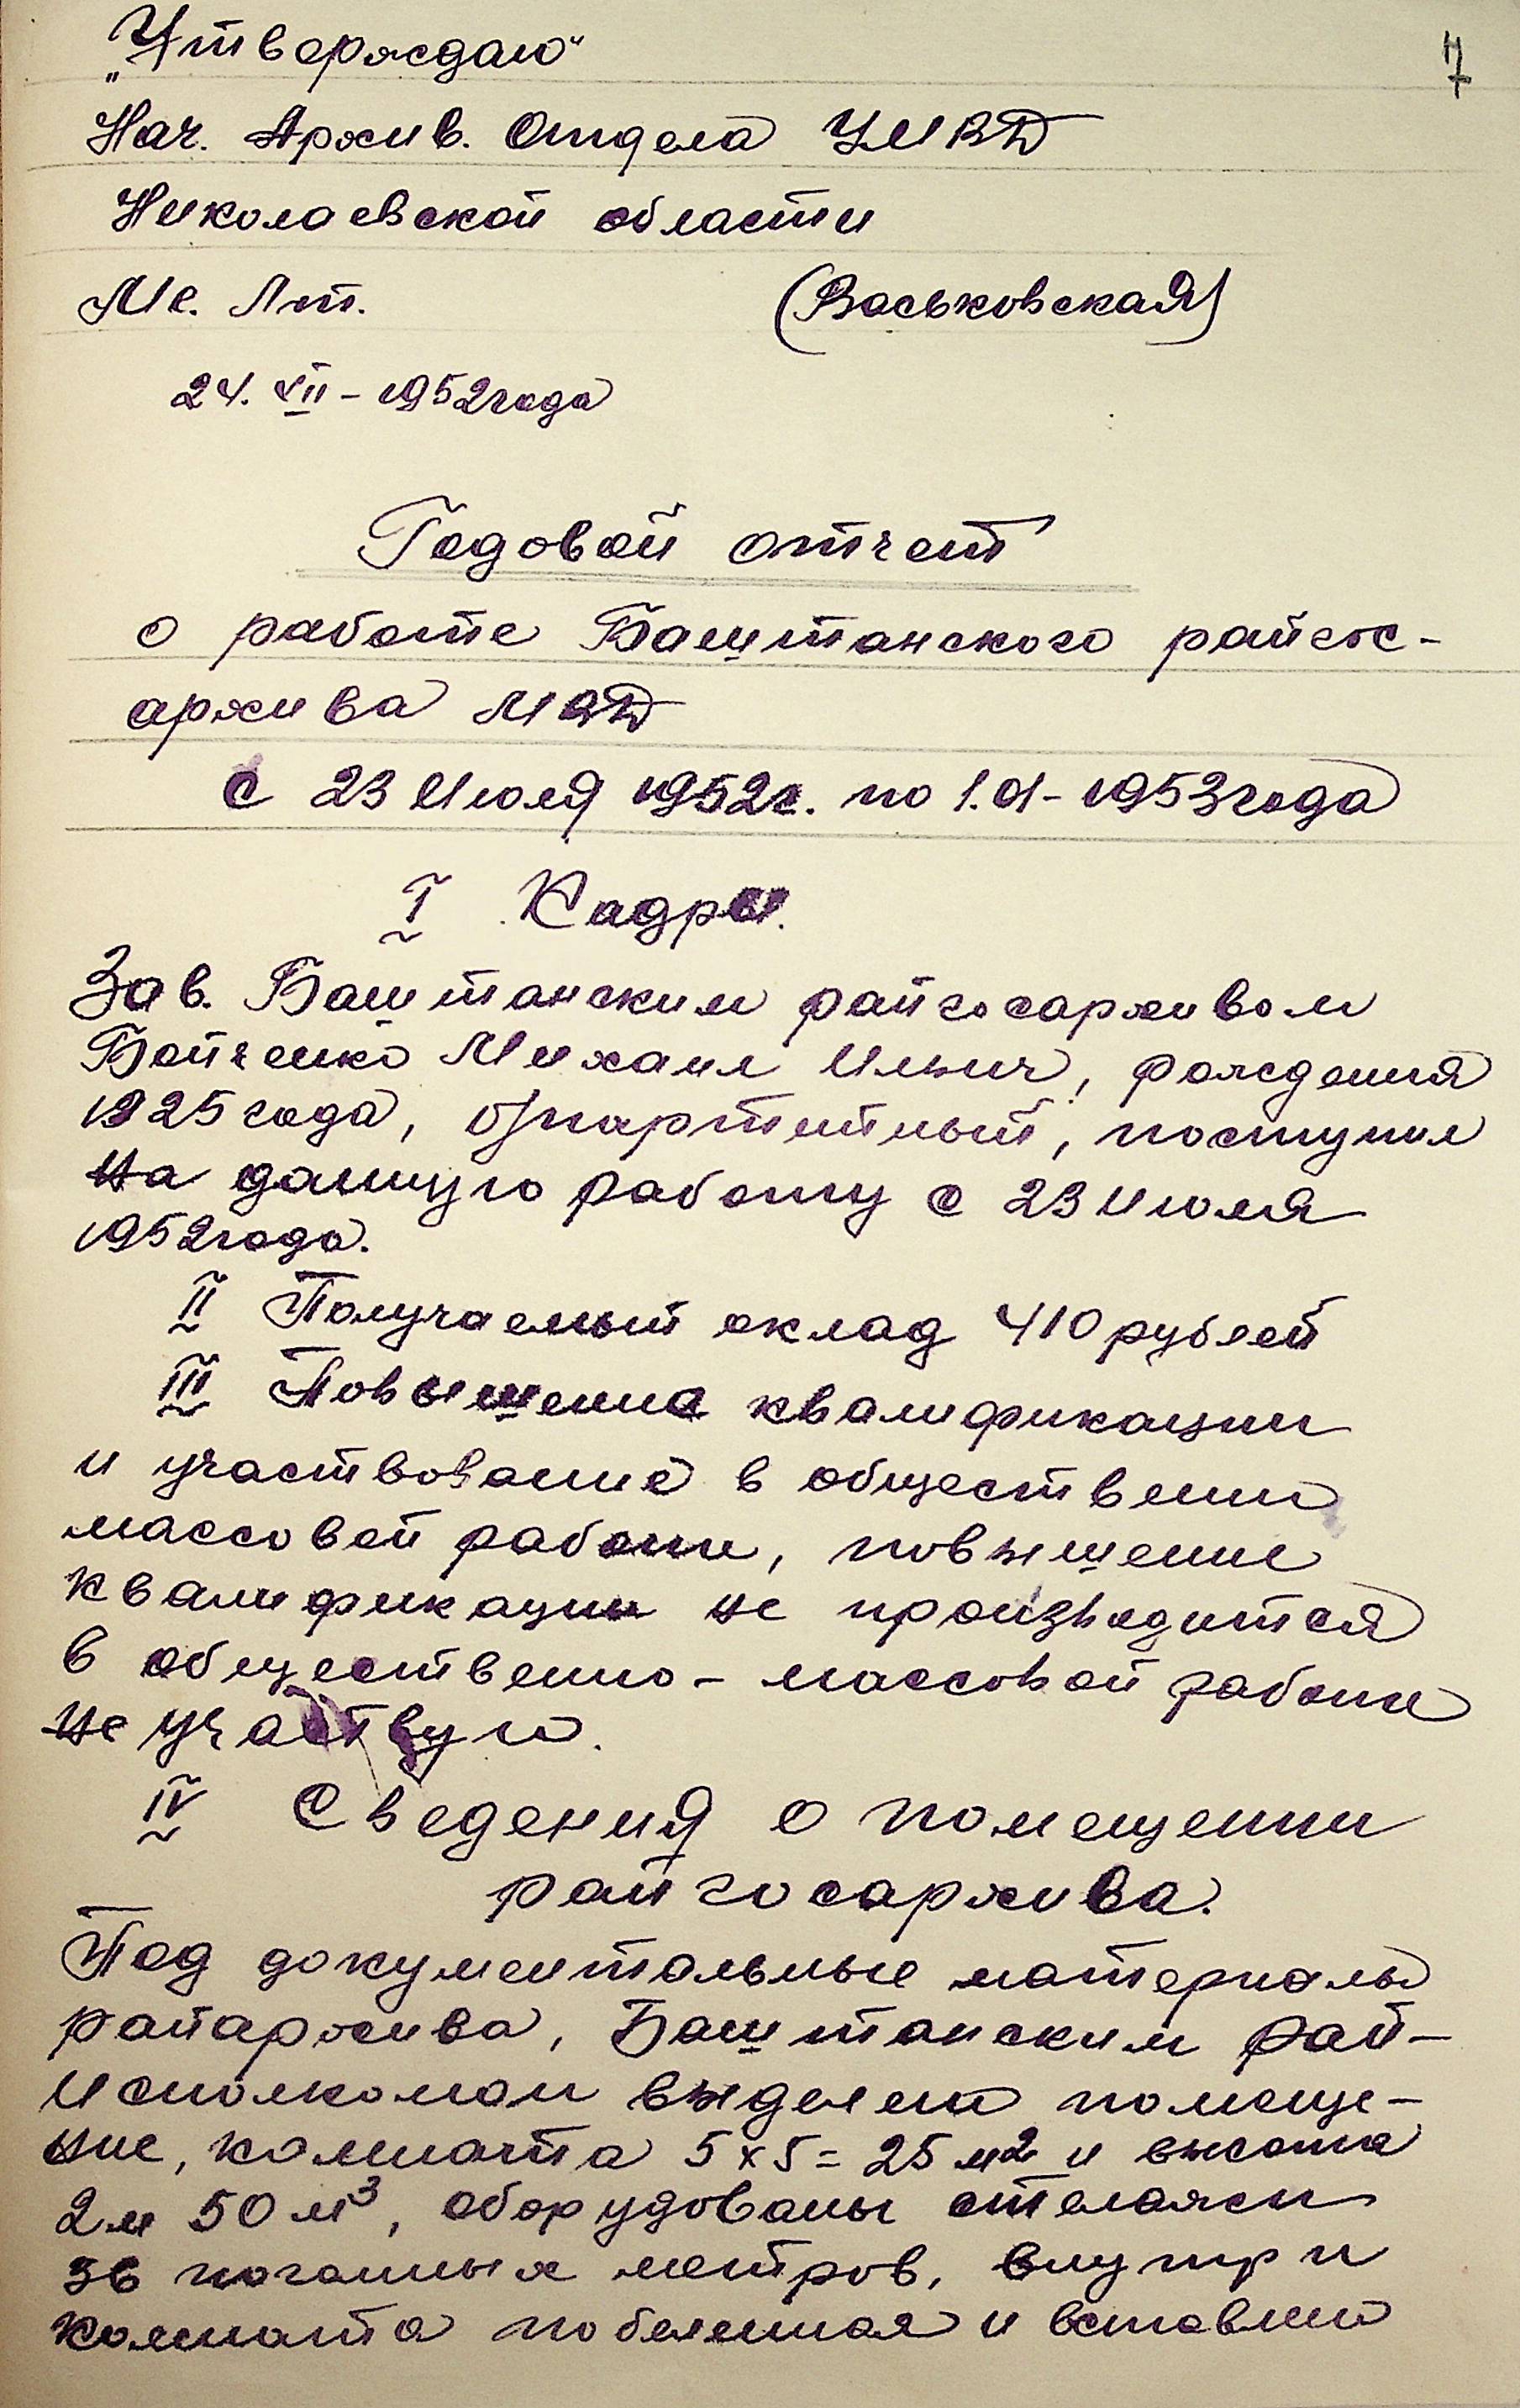 7
„Утверждаю"
Нач. Архив. Отдела УМВД
Николаевской области
Мл. Лт. (Васьковская)
24. XII – 1952 года
Годовой отчет
о работе Баштанского райгос-
архива МВД
С 23 Июля 1952 г. по 1.01 – 1953 года
I Кадры.
Зав. Баштанским райгосархивом
Бойченко Михаил Ильич, рождения
1925 года, б/партийный, поступил
на данную работу с 23 июля
1952 года.
II Получаемый оклад 410 рублей
III Повышения квалификации
и участвование в общественно
массовой работи, повышение
квалификации не производится
в общественно – массовой работе
не участвую.
IV Сведения о помещении
райгосархива.
Под документальные материалы
райархива, Баштанским рай-
исполкомом выделено помеще-
ние, комната 5 x 5 = 25 м2 и высота
2 м 50 м³, оборудованы стелажи
36 погонных метров, внутри
комната побеленная и вставлено